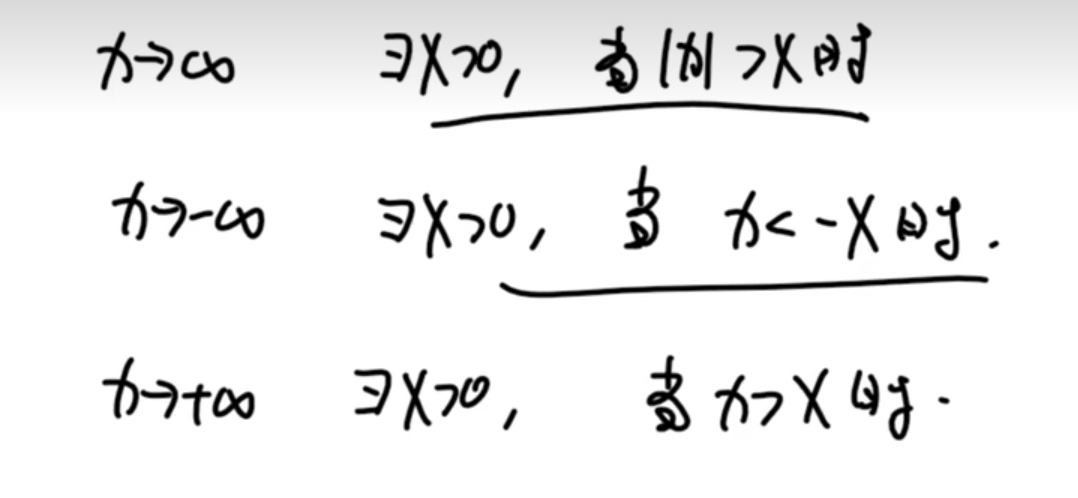 x→∞ ∃X>0, 当|x|>X时
x→-∞ ∃X>0, 当 x<-X时.
x→+∞ ∃X>0, 当x>X时.